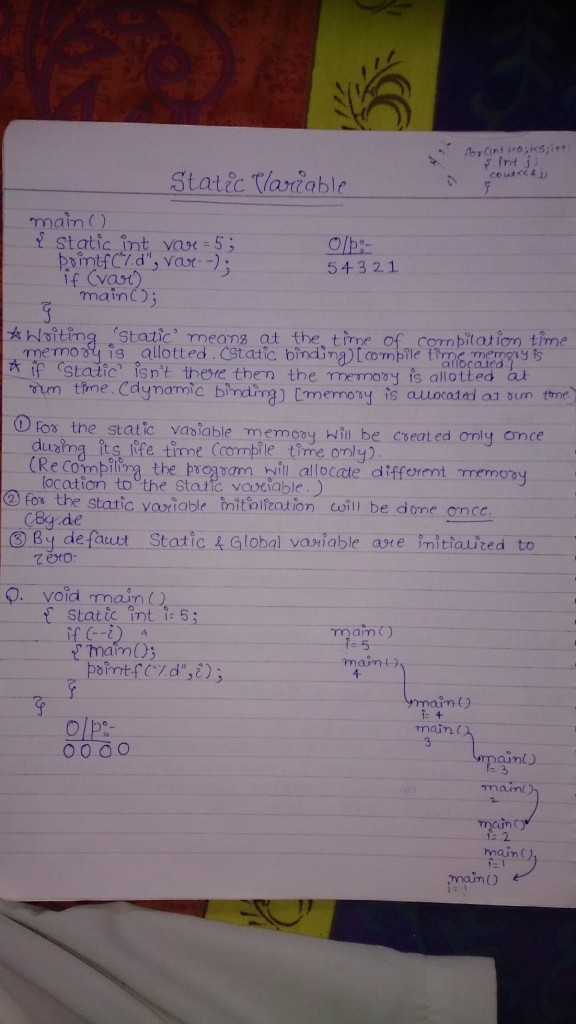 for(int i=0;i<5;i++)
{ int j;
cout<<j;
}
Static Variable
main()
{ static int var = 5;
printf("%d", var--);
if (var)
main();
}
O/p:-
5 4 3 2 1
* Writing 'static' means at the time of compilation time
memory is allotted. (static binding) [compile time memory is
allocated]
* if 'static' isn't there then the memory is allotted at
run time. (dynamic binding) [memory is allocated at run time]
① For the static variable memory will be created only once
during its life time (compile time only).
(Re compiling the program will allocate different memory
location to the static variable.)
② For the static variable initialization will be done once.
(By de
③ By default Static & Global variable are initialized to
zero.
Q. void main()
{ static int i=5;
if (--i)
{ main();
printf("%d",i);
}
}
O/p:-
0 0 0 0
main()
i=5
main()
4
main()
i=4
main()
3
main()
i=3
main()
2
main()
i=2
main()
i=1
main()